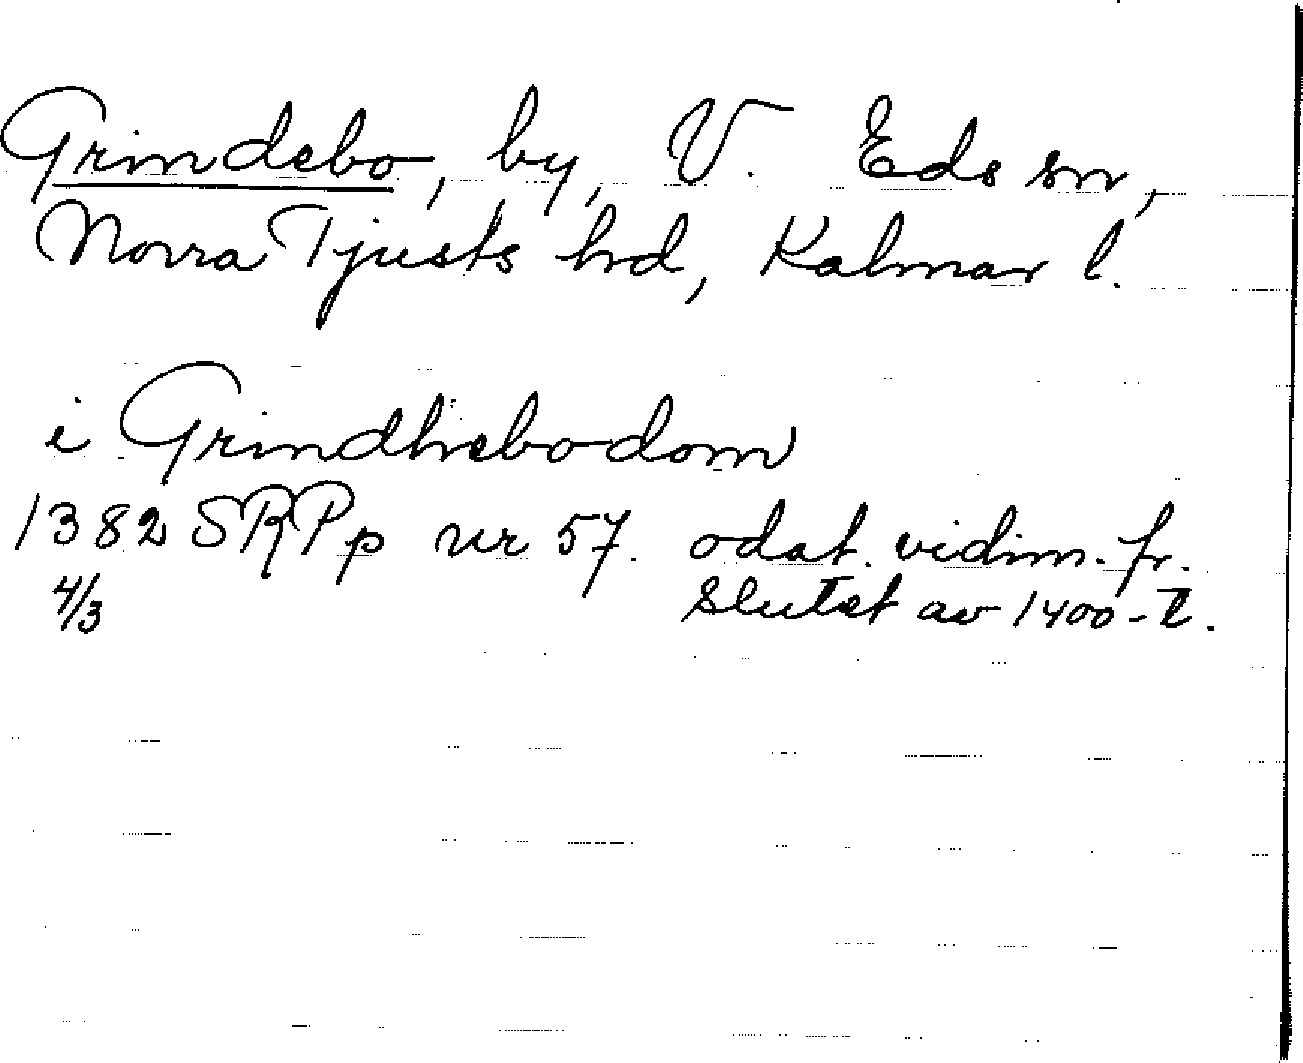 Grindebo, by, V. Eds sn,
Norra Tjusts hrd, Kalmar l.
i Grindhebodom
1382 SRPp nr 57. odat. vidim. fr.
4/3 slutet av 1400-t.